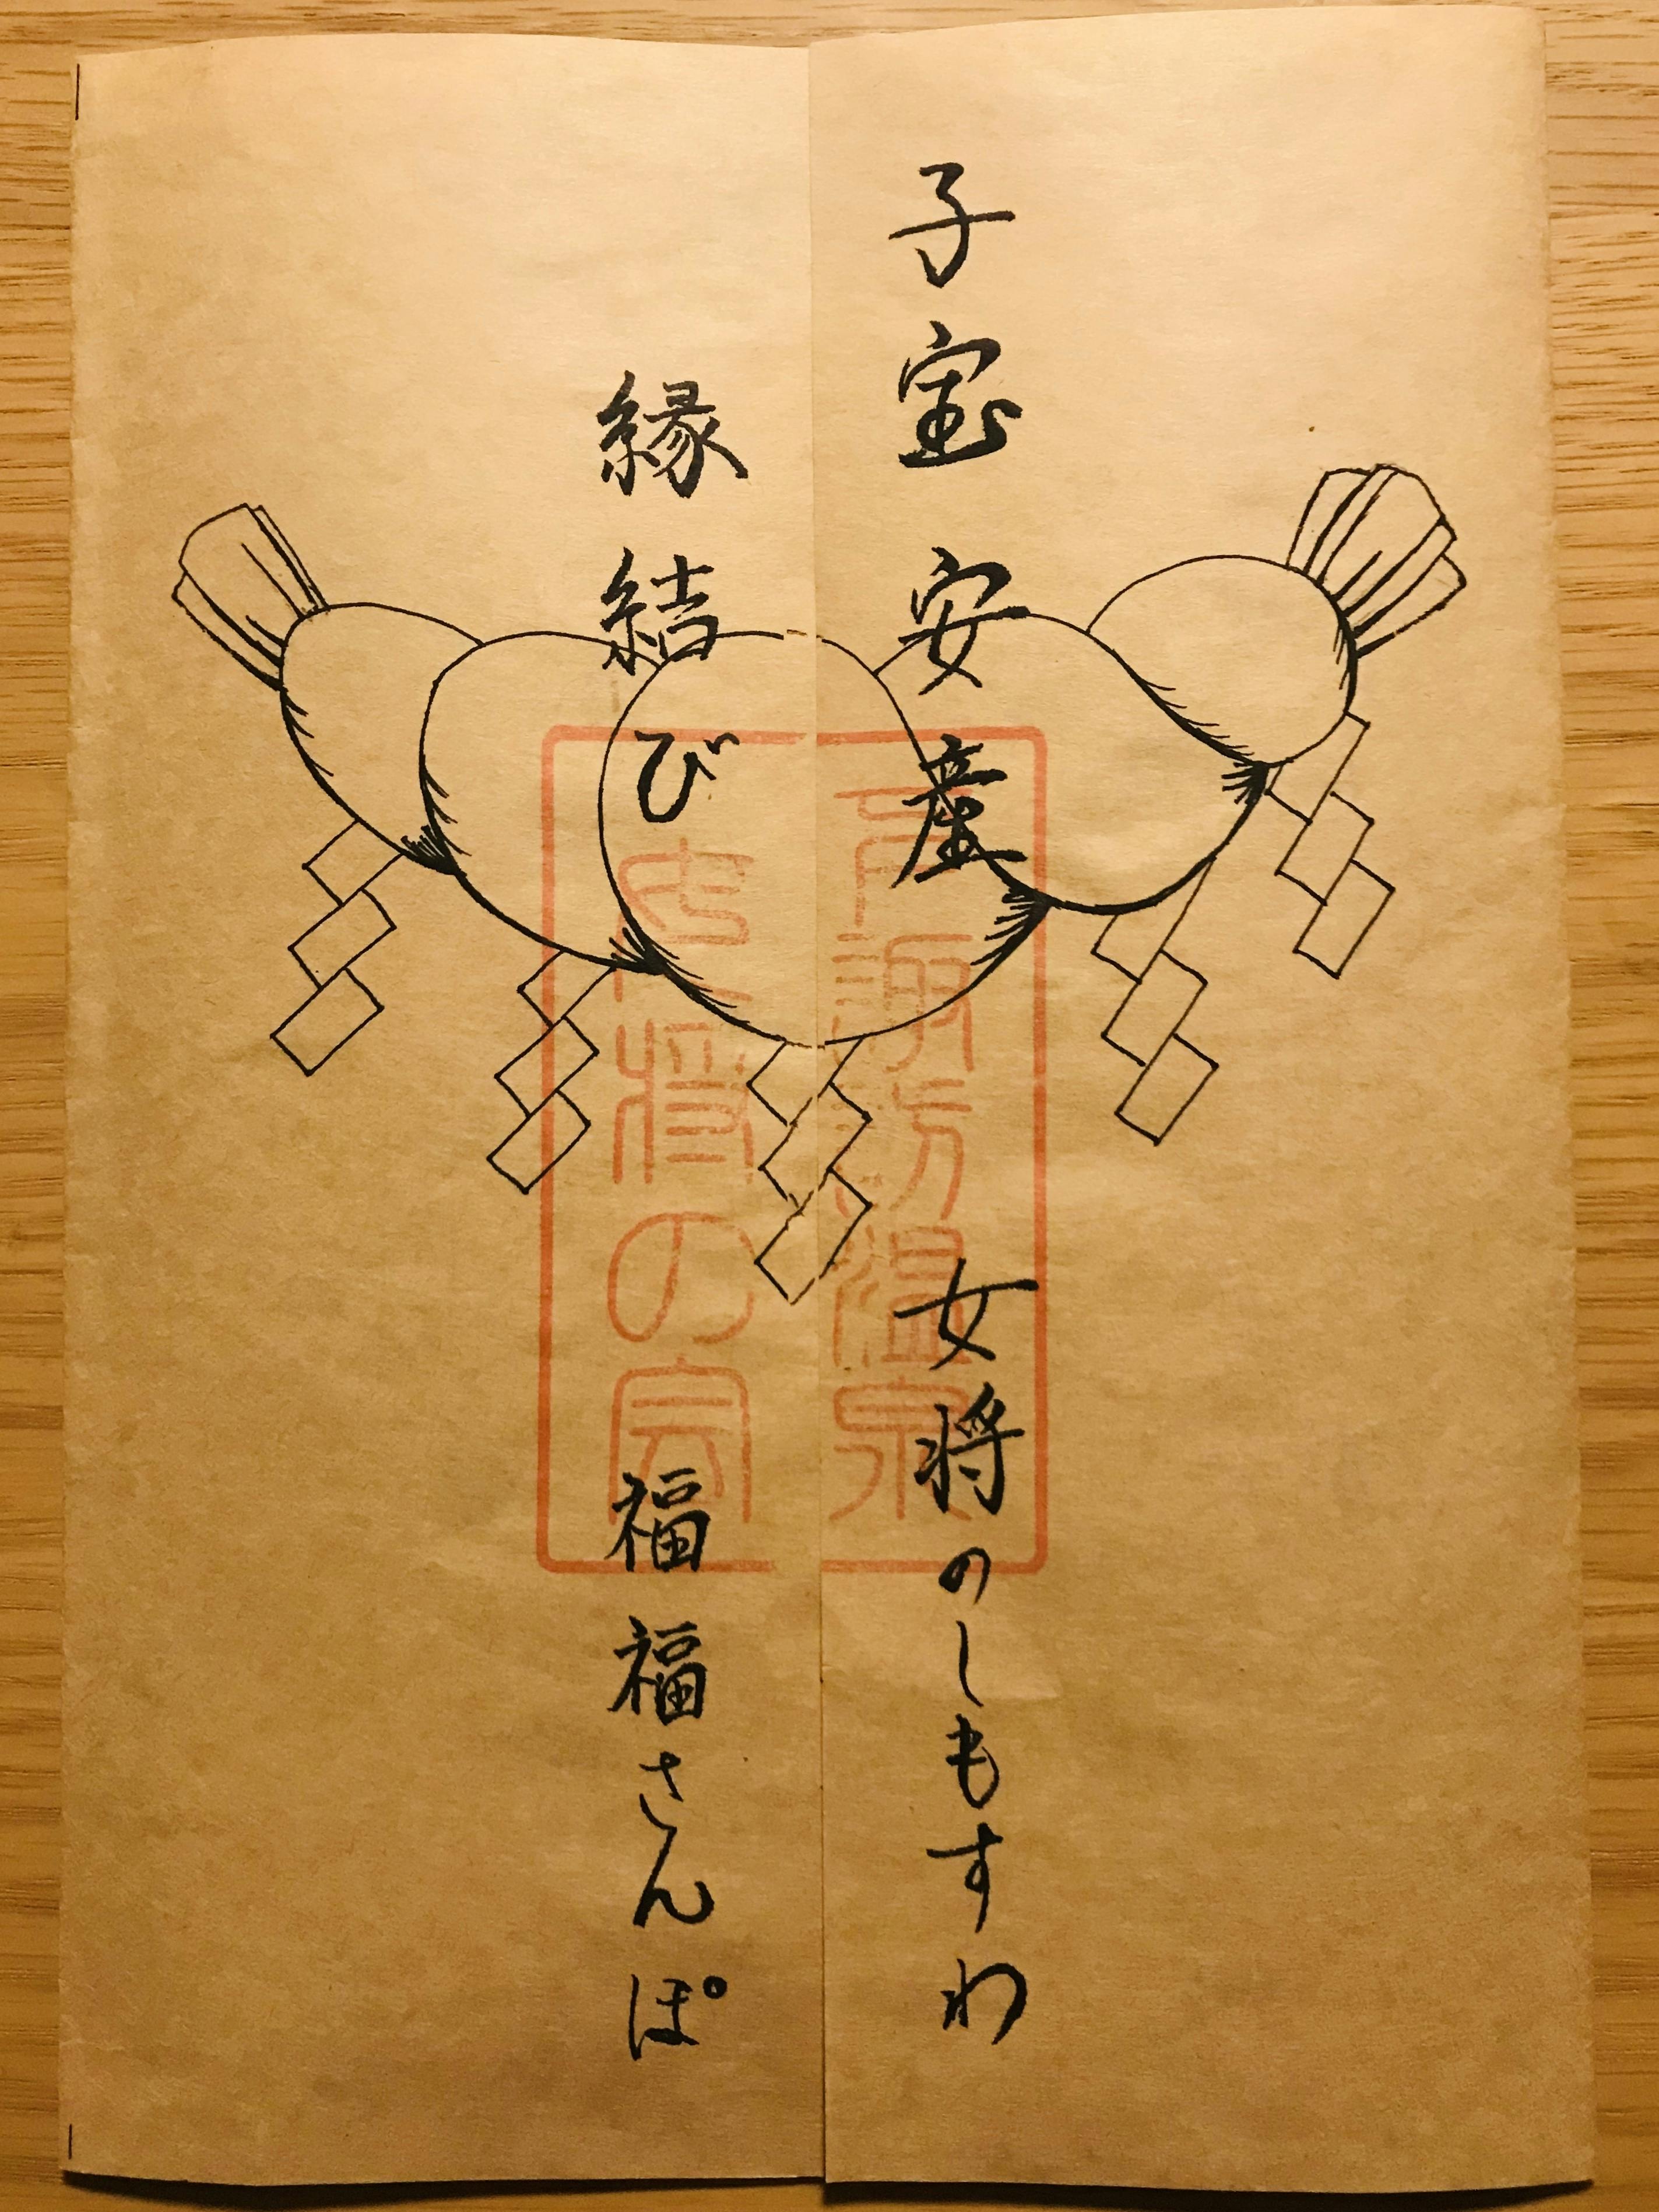 子宝 安産 女将のしもすわ
縁結び 福福さんぽ
下諏訪温泉
女将の会